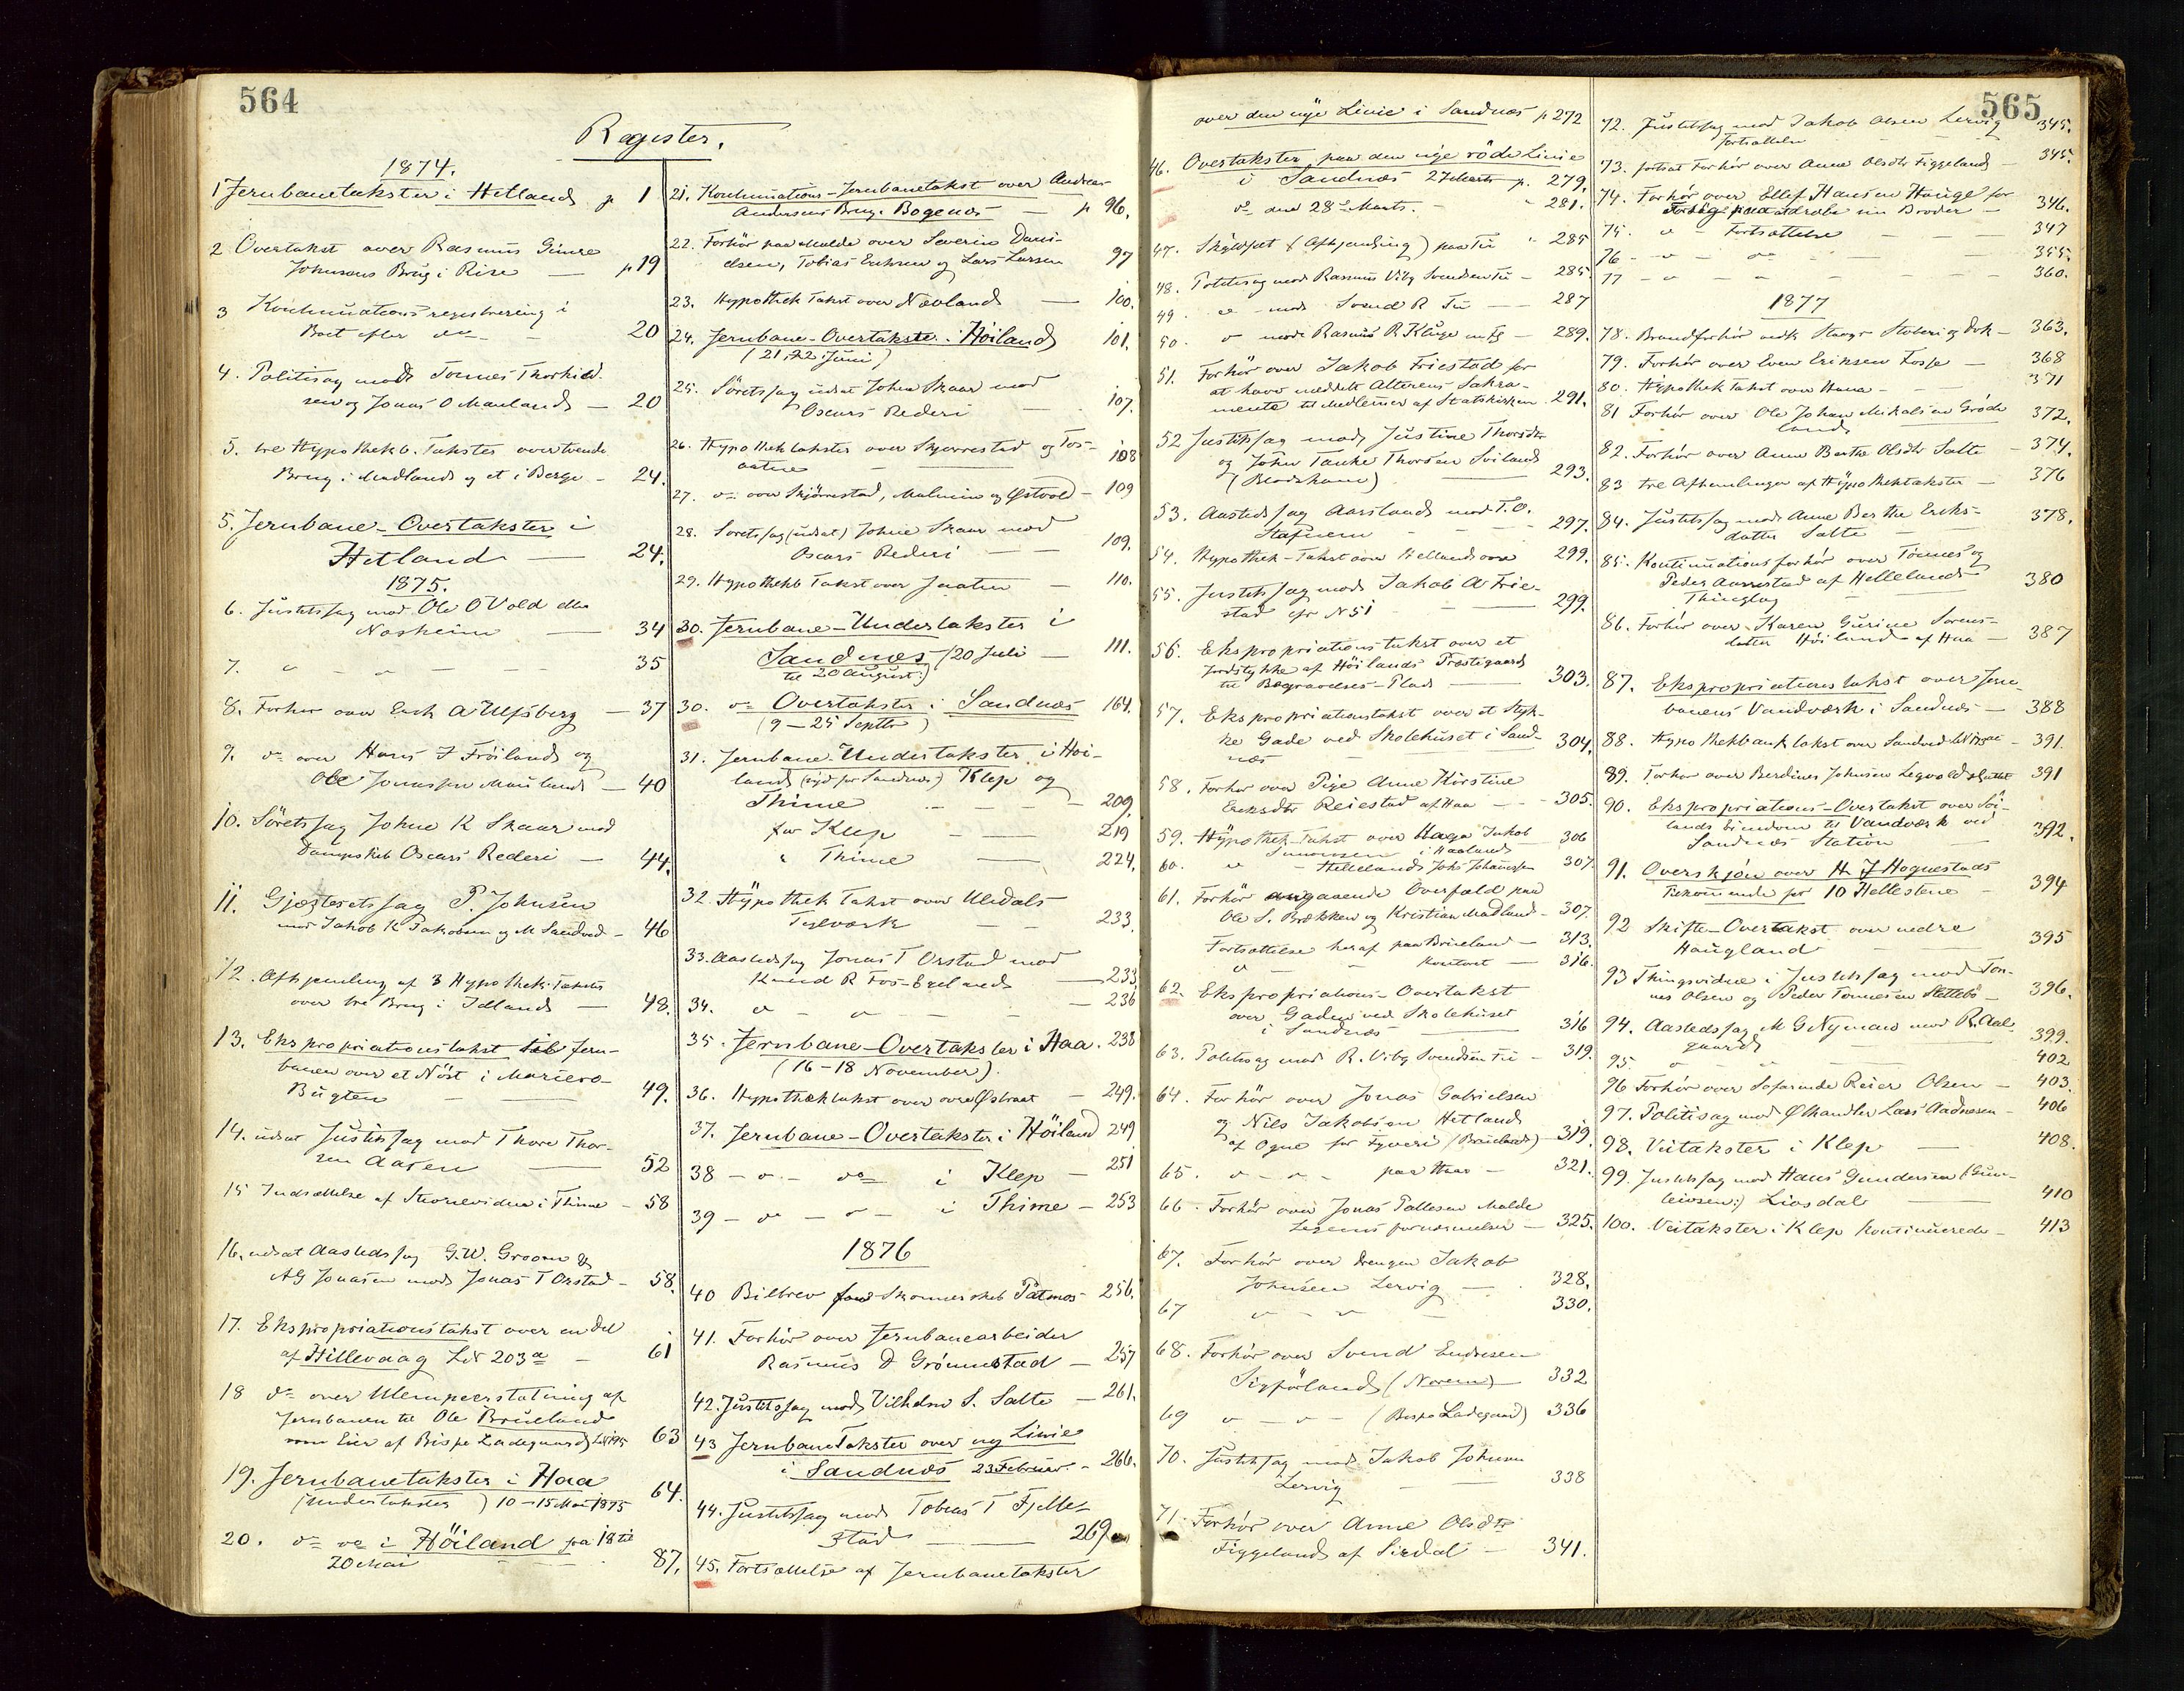 564
Register.
1874.
1 Jernbanetakster i Hetland p 1
2 Overtakst over Rasmus Gimre
Johnsens Brug i Rise — p 19
3 Kontinuations registrering i
Boet efter do — 20
4. Politisag mod Tønnes Thorkild-
sen og Jonas O Mauland — 20
5. tre Hypothekb. Takster over tvende
Brug i Madland og et i Berge — 24.
5. Jernbane-Overtakster i
Hetland — 24.
1875.
6. Justitssag mod Ole O Vold eller
Nosheim — 34
7. " — " — 35
8. Forhør over Erik A Ulfsberg — 37
9. do over Hans J Frøiland og
Ole Jonassen Mauland — 40
10. Søretssag Johne K Skaar mod
Dampskib Oscars Rederi — 44.
11. Gjæsteretssag P. Johnsen
mod Jakob K Jakobsen og M Sandved — 46
12. Afhjemling af 3 Hypothek-Takster
over tre Brug i Idland — 48.
13. Ekspropriationstakst til Jern-
banen over et Nøst i Mariero-
Bugten — 49.
14. udsat Justitssag mod Thore Thor-
sen Aasen — 52
15 Indsættelse af Storevidne i Thime — 58
16. udsat Aastedssag G.W. Groom &
AG Jonassen mod Jonas T Orstad — 58.
17. Ekspropriationstakst over en Del
af Hillevaag LN 203a — 61
18 do over Ulempeerstatning af
Jernbanen til Ole Brueland
som Eier af Bispe Ladegaard LN 195 63
19. Jernbanetakster i Haa
(Undertakster) 10—15 Mai 1875 64.
20. do do i Höiland fra 18 til
20 Mai 87.
21. Kontinuations-Jernbanetakst over Andreas
Andersens Brug i Bogenæs — p 96.
22. Forhör paa Malde over Severin Dani-
elsen, Tobias Eriksen og Lars Larsen 97
23. Hypothek Takst over Nævland — 100.
24. Jernbane-Overtakster i Höiland 101.
(21, 22 Juni)
25. Söretssag udsat Johne Skaar mod
Oscars Rederi — 107.
26. Hypothektakster over Skjørrestad og Fos-
aatne — 108
27. do over Skjörrestad, Malmin og Østvold — 109
28. Soretssag (udsat) Johne Skaar mod
Oscars Rederi — 109.
29. Hypothekb Takst over Jaatten — 110.
30. Jernbane-Undertakster i
Sandnæs (20 Juli — 111.
til 20 August)
30. do Overtakster i Sandnæs 164.
(9—25 Septbr)
31. Jernbane-Undertakster i Höi-
land (syd for Sandnæs) Klep og
Thime — 209.
for Klep — 219
" Thime — 224.
32. Hÿpothek Takst over Uledals
Teglværk — 233.
33. Aastedssag Jonas T Orstad mod
Knud R Fos-Ereland — 233
34. do — do — 236
35. Jernbane-Overtakster i Haa. 238
(16—18 November).
36. Hypothektakst over øvre Østraat — 249.
37. Jernbane-Overtakster i Höiland 249
38 — do — i Klep — 251
39 — do — i Thime — 253
1876
40 Bilbrev for Skonnerskib Patmos — 256.
41. Forhör over Jernbanearbeider
Rasmus D Grönnestad — 257
42. Justitssag mod Vilhelm S. Salte — 261.
43 Jernbanetakster over ny Linie
i Sandnæs 23 Februar. — 266.
44. Justitssag mod Tobias T Fjelle-
stad — 269
45. Fortsættelse af Jernbanetakster
565
over den nye Linie i Sandnæs p 272
46. Overtakster paa den nye röde Linie
i Sandnæs 27 Marts p. 279.
do den 28de Marts. — 281.
47. Skyldsæt (Afhjemling) paa Tu " 285
48. Politisag mod Rasmus Viby Svendsen Tu — 285.
49. do mod Svend R Tu — 287
50. do mod Rasmus R Kluge — 289.
51. Forhör over Jakob Friestad for
at have meddelt Alterens Sakra-
mente til Medlemer af Statskirken 291.
52 Justitssag mod Justine Thorsdtr
og John Tanke Thorsen Sviland
(Blodskam) 293.
53. Aastedssag Aarsland mod T.O.
Stafnem — 297.
54. Hypothek-Takst over Helland — 299.
55. Justitssag mod Jakob A Frie-
stad cfr N 51 — 299.
56. Ekspropriationstakst over et
Jordstykke af Höilands Præstegaard
til Begravelses-Plads — 303.
57. Ekspropriationstakst over et Styk-
ke Gade ved Skolehuset i Sand-
næs — 304.
58. Forhør over Pige Anne Kirstine
Eriksdtr Reiestad af Haa — 305.
59. Hÿpothek-Takst over Haga Jakob 306
Simonsen i Haaland
60. do — Hellelands Johs Johannessen 307.
61. Forhör angaaende Overfald paa
Ole S. Brækken og Kristian Madland — 307.
Fortsættelse heraf paa Brueland — 313.
do — Kontoret — 316.
62. Ekspropriations-Overtakst
over Gaden ved Skolehuset
i Sandnæs — 316
63. Politisag mod R. Viby Svendsen Tu — 319.
64. Forhör over Jonas Gabrielsen
og Nils Jakobsen Hetland
af Ogne for Tyveri (Brueland) — 319.
65. do — do — paa Haa — 321.
66. Forhör over Jonas Pallesen Malde
Legems fornærmelser — 325.
67. Forhör over Drengen Jakob
Johnsen Lervig — 328.
67 do — do — 330.
68. Forhör over Svend Endresen
Sigförland (Norem) — 332
69 do — do — (Bispe Ladegaard) 336
70. Justitssag mod Jakob Johnsen
Lervig — 338
71. Forhör over Anne Olsdtr
Figgeland af Sirdal — 341.
72. Justitssag mod Jakob Olsen Lervig 345.
fortsættelse
73. fortsat Forhör over Anne Olsdtr Figgeland — 345.
74. Forhör over Ellef Hansen Hauge for
Forsøg paa at dræbe sin Broder — 346.
75. do — Fortsættelse — 347
76 — do — do — 355.
77 — do — 360.
1877
78. Brandforhör — 363.
79. Forhör over Even Eriksen Fosse — 368
80. Hÿpothek Takst over Hana — 371
81 Forhör over Ole Johan Mikalsen Gröde-
land 372.
82. Forhör over Anne Berthe Olsdtr Salte — 374.
83 tre Afhemlinger af Hÿpothektakster — 376
84. Justitssag mod Anne Berthe Eriks-
datter Salte — 378.
85. Kontinuationsforhör over Tönnes og
Peder Aarrestad af Hellelands
Thinglag 380
86. Forhör over Karen Gurine Sörens-
datter Höiland af Haa — 387
87. Ekspropriationstakst over Jern-
banens Vandværk i Sandnæs — 388
88. Hypothekbank takst over Sandved — 391.
89. Forhør over Berdines Johnsen Legvold 391
90. Ekspropriations-Overtakst over Sör-
lands Eiendom til Vandværk ved
Sandnæs Station — 392.
91. Overskjön over H J Hognestads
Tilkommende for 10 Hellestene — 394
92 Skifte-Overtakst over nedre
Haugland — 395
93 Thingsvidne i Justitssag mod Tön-
nes Olsen og Peder Tönnesen Slettebö — 396.
94. Aastedssag M G Nyman mod R. Aal-
gaard — 399.
95. do — 402
96 Forhör over Söfarende Reier Olsen — 403.
97. Politisag mod Ølhandler Lars Aadnesen — 406
98. Veitakster i Klep — 408.
99. Justitssag mod Hans Gundersen (Gun-
leiosen:) Liosdal — 410
100. Veitakster i Klep kontinuerede — 413